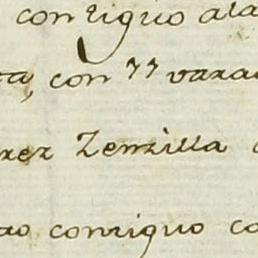 contiguo ala
con 77 varas
Zenzilla
contiguo co